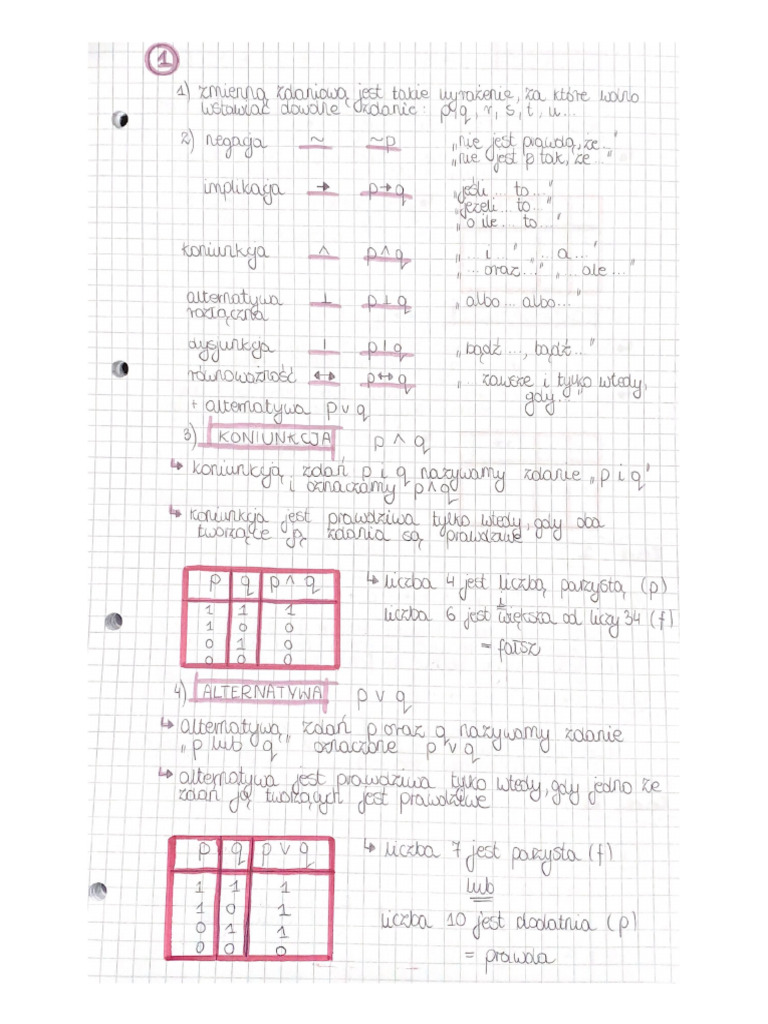 1
1) zmienną zdaniową jest takie wyrażenie, za które wolno
wstawiać dowolne zdanie: p, q, r, s, t, u...
2) negacja ~ ~p „nie jest prawdą, że..."
„nie jest p tak, że..."
implikacja → p→q „jeśli... to..."
„jeżeli... to..."
„o ile... to..."
koniunkcja ∧ p∧q „... i..." „... a..."
„... oraz..." „... ale..."
alternatywa ⊥ p⊥q „albo... albo..."
rozłączna
dysjunkcja | p|q „bądź..., bądź..."
równoważność ↔ p↔q „... zawsze i tylko wtedy,
gdy..."
+ alternatywa p∨q
3) KONIUNKCJA p ∧ q
↳ koniunkcją zdań p i q nazywamy zdanie „p i q"
i oznaczamy p∧q
↳ koniunkcja jest prawdziwa tylko wtedy, gdy oba
tworzące ją zdania są prawdziwe
p q p∧q
1 1 1
1 0 0
0 1 0
0 0 0
↳ liczba 4 jest liczbą parzystą (p)
i
liczba 6 jest większa od liczy 34 (f)
= fałsz
4) ALTERNATYWA p ∨ q
↳ alternatywą zdań p oraz q nazywamy zdanie
„p lub q" oznaczone p∨q
↳ alternatywa jest prawdziwa tylko wtedy, gdy jedno ze
zdań ją tworzących jest prawdziwe
p q p∨q
1 1 1
1 0 1
0 1 1
0 0 0
↳ liczba 7 jest parzysta (f)
lub
liczba 10 jest dodatnia (p)
= prawda